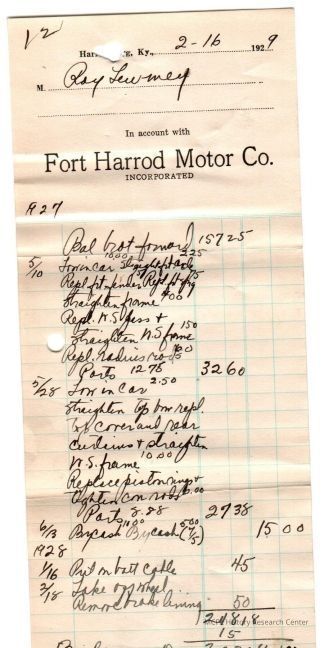 12
Harrodsburg, Ky., 2-16 1929
M. Roy
In account with
Fort Harrod Motor Co.
INCORPORATED
1927
Bal brot forward 157 25
5/10 Tow in car 10.00 2.25
Repl ft fender Repl ft
Straighten frame 4.00
Repl W.S. glass &
Straighten W.S frame 1.50
Repl. radius rod
Parts 12 75 32 60
5/28 Tow in car 2.50
Straighten top bow repl.
top cover and rear
curtains & straighten
W.S. frame 10.00
Replace piston rings &
tighten con rods
Parts 8.88 27 38
6/13 By cash 10.00 By cash (7/5) 5.00 15 00
1928
1/16 Put on batt cable 45
2/18 Take off wheel
Remove brake lining 50
218 18
15
History Research Center